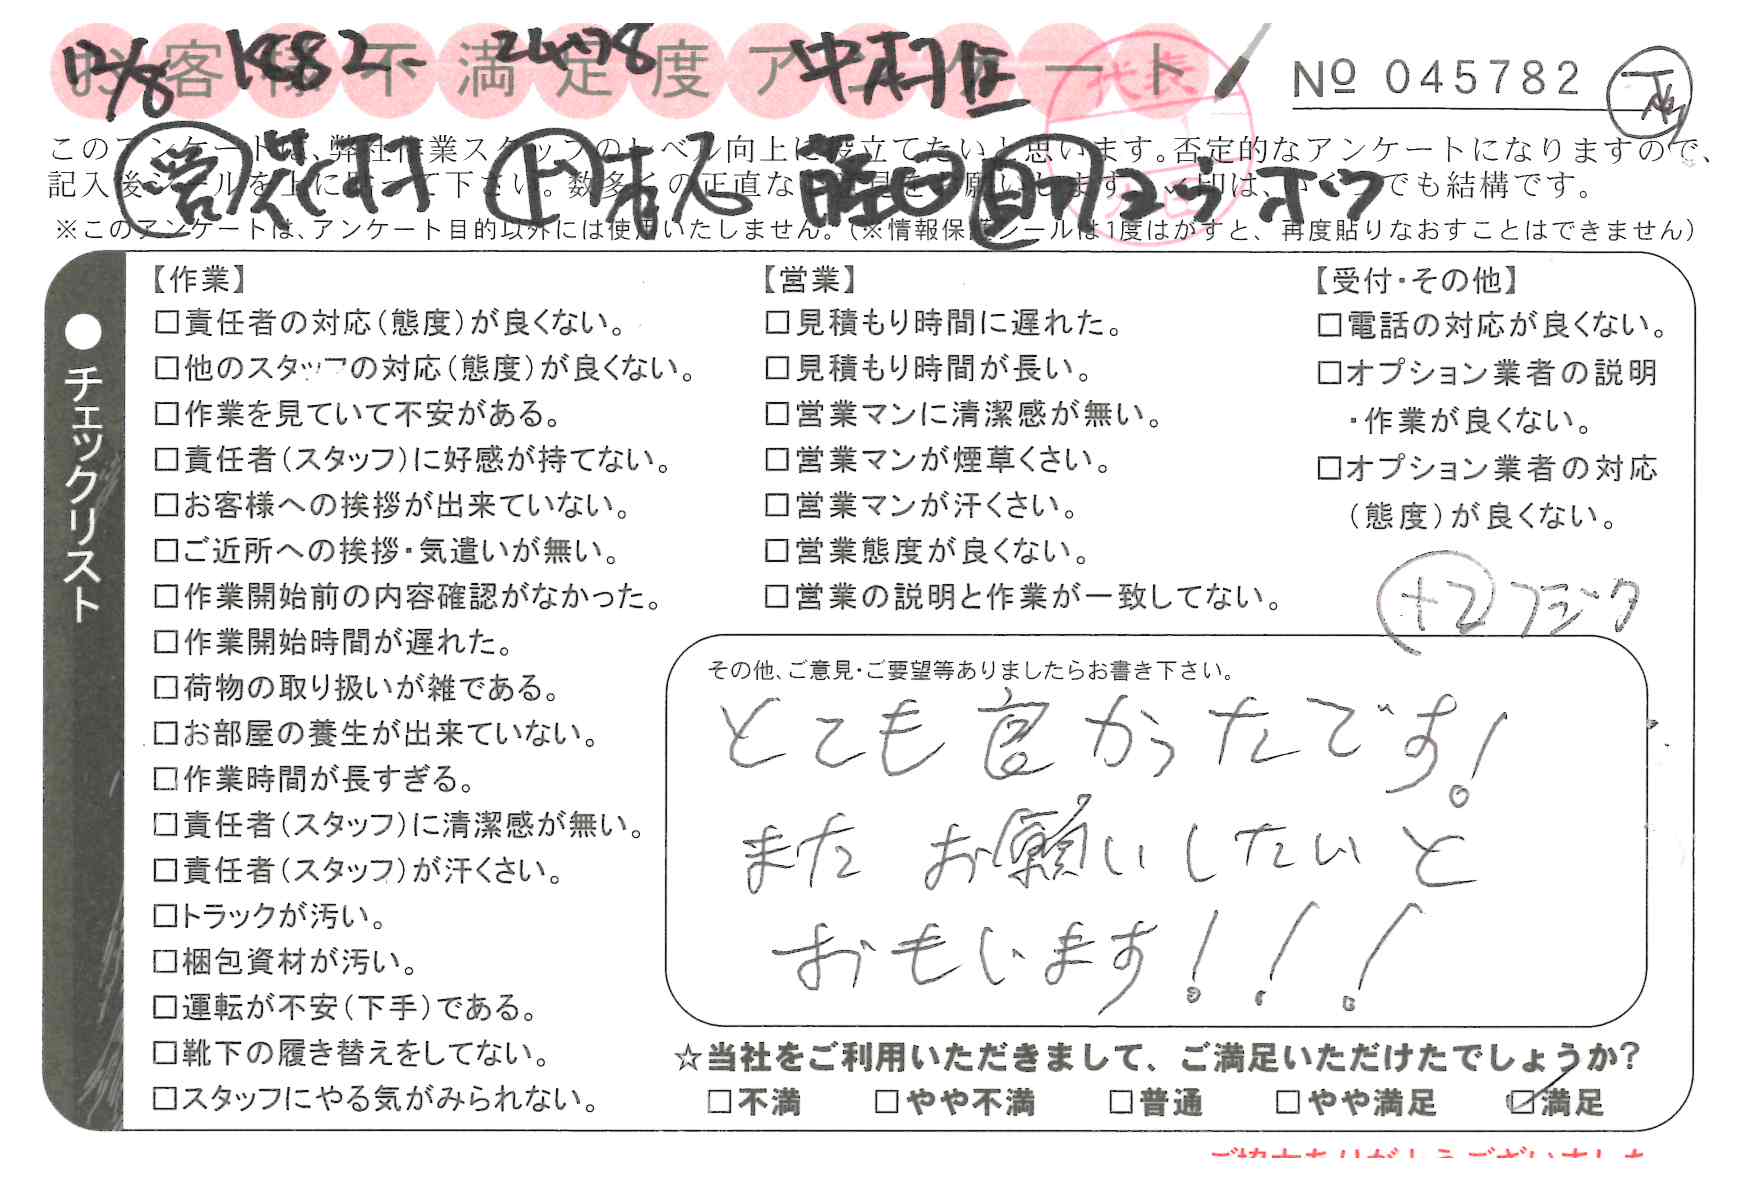 お客様不満足度アンケート
12/8 中村区
№ 045782
このアンケートは、弊社作業スタッフのレベル向上に役立てたいと思います。否定的なアンケートになりますので、
記入後シールを上に貼って下さい。数多くの正直なご意見をお願いします。 印は、いくつでも結構です。
※このアンケートは、アンケート目的以外には使用いたしません。(※情報保護シールは1度はがすと、再度貼りなおすことはできません)
●チェックリスト
【作業】
□責任者の対応(態度)が良くない。
□他のスタッフの対応(態度)が良くない。
□作業を見ていて不安がある。
□責任者(スタッフ)に好感が持てない。
□お客様への挨拶が出来ていない。
□ご近所への挨拶・気遣いが無い。
□作業開始前の内容確認がなかった。
□作業開始時間が遅れた。
□荷物の取り扱いが雑である。
□お部屋の養生が出来ていない。
□作業時間が長すぎる。
□責任者(スタッフ)に清潔感が無い。
□責任者(スタッフ)が汗くさい。
□トラックが汚い。
□梱包資材が汚い。
□運転が不安(下手)である。
□靴下の履き替えをしてない。
□スタッフにやる気がみられない。
【営業】
□見積もり時間に遅れた。
□見積もり時間が長い。
□営業マンに清潔感が無い。
□営業マンが煙草くさい。
□営業マンが汗くさい。
□営業態度が良くない。
□営業の説明と作業が一致してない。
【受付・その他】
□電話の対応が良くない。
□オプション業者の説明
・作業が良くない。
□オプション業者の対応
(態度)が良くない。
+2
その他、ご意見・ご要望等ありましたらお書き下さい。
とても良かったです!
またお願いしたいと
おもいます!!!
☆当社をご利用いただきまして、ご満足いただけたでしょうか?
□不満 □やや不満 □普通 □やや満足 ☑満足
ご協力ありがとうございました